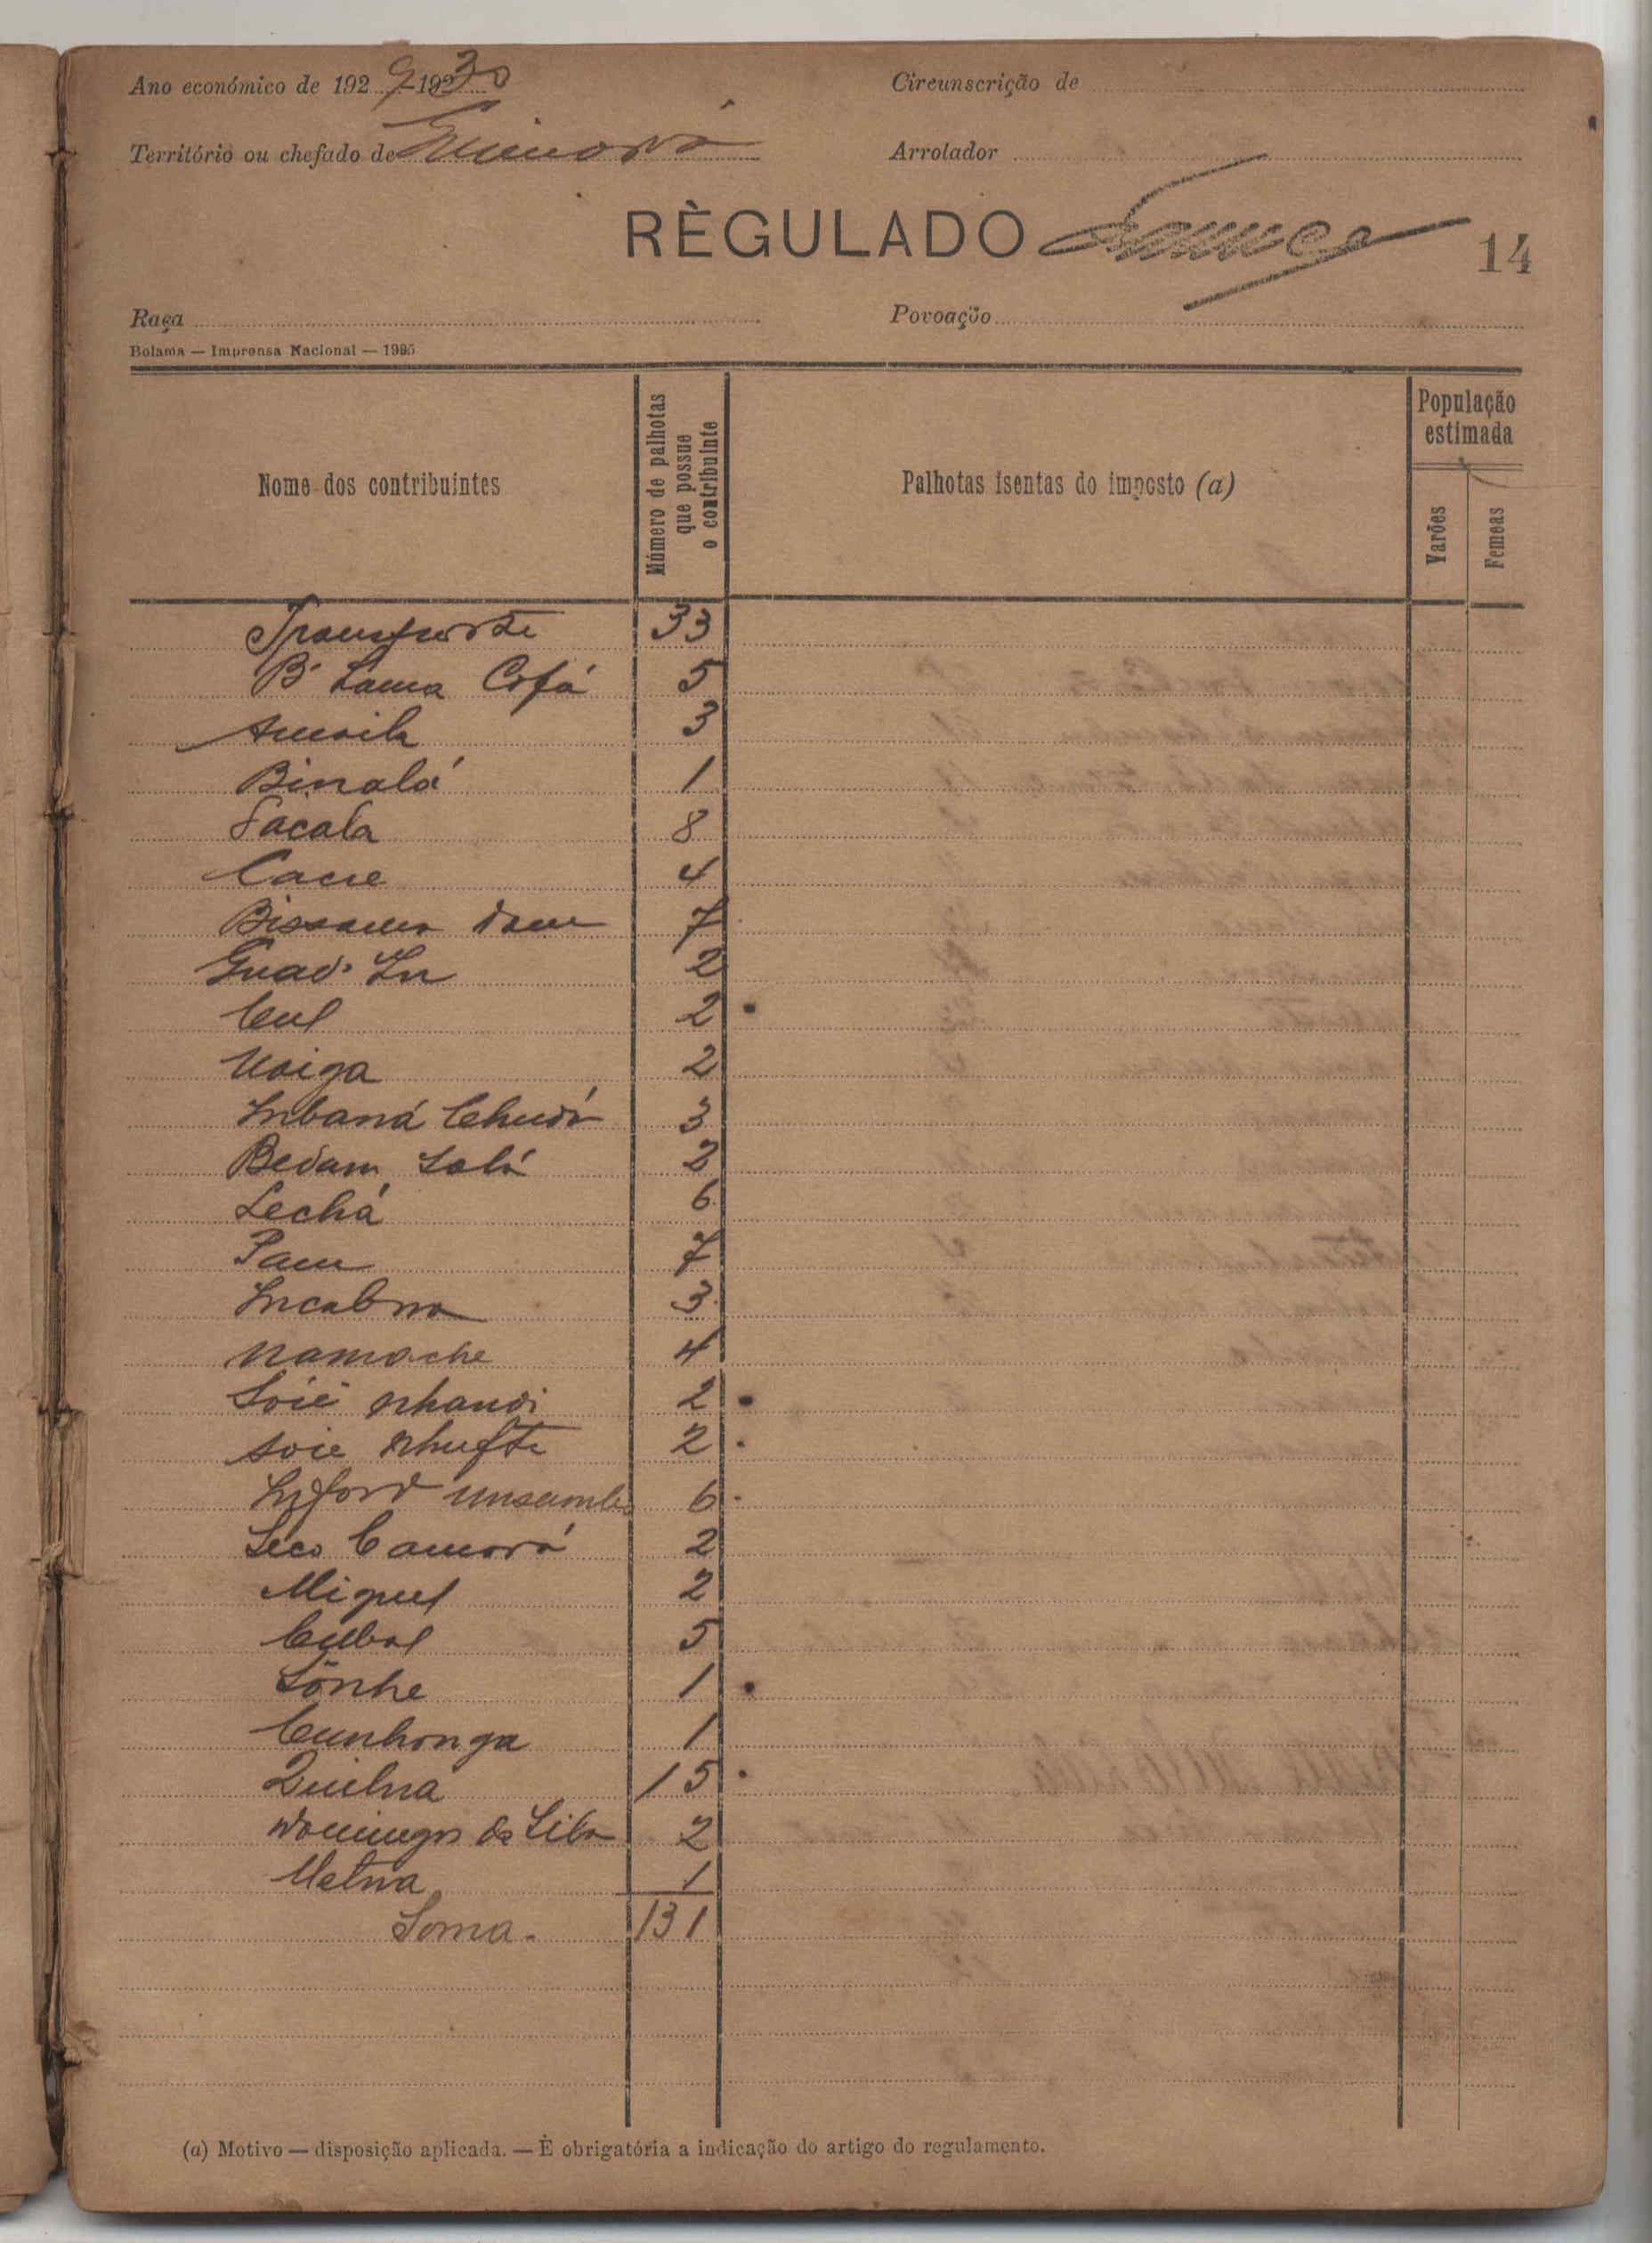 Ano económico de 1929-1930
Circunscrição de
Território ou chefado de
Arrolador
RÈGULADO
14
Raça
Povoação
Bolama — Imprensa Nacional — 1925
Nome dos contribuintes
Número de palhotas que possue o contribuinte
Palhotas isentas do imposto (a)
População estimada
Varões
Femeas
Transporte 33
B' Lama Cofá 5
3
Binalá 1
Sacala 8
Cacre 4
Bissamo 7
Guad. In 2
Cul 2
Uaiga 2
Inbaná Chudá 3
Bedam Lalá 2
Lechá 6
Pam 7
Incabna 3
Namoche 4
Soié Nhandi 2
Soie 2
6
Seco Camará 2
Miguel 2
Cubal 5
Sonhe 1
Cunhonga 1
Quilna 15
Domingos da Silva 2
Metna 1
Soma. 131
(a) Motivo — disposição aplicada. — É obrigatória a indicação do artigo do regulamento.